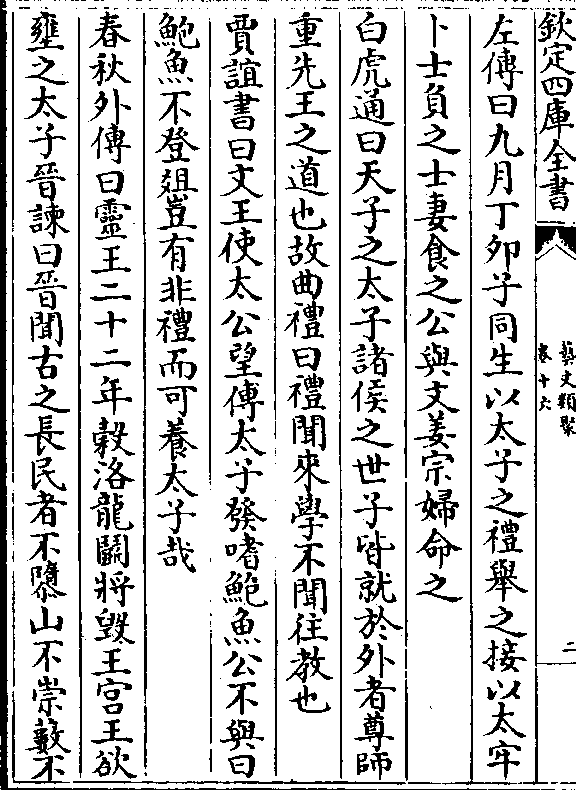 欽定四庫全書
藝文類聚
卷十六
二
左傳曰九月丁卯子同生以太子之禮舉之接以太牢
卜士負之士妻食之公與文姜宗婦命之
白虎通曰天子之太子諸侯之世子皆就於外者尊師
重先王之道也故曲禮曰禮聞來學不聞往教也
賈誼書曰文王使太公望傅太子發嗜鮑魚公不與曰
鮑魚不登俎豈有非禮而可養太子哉
春秋外傳曰靈王二十二年穀洛龍鬭將毀王宮王欲
壅之太子晉諫曰晉聞古之長民者不隳山不崇藪不